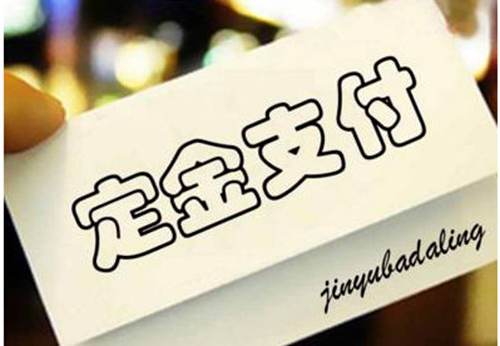 定金支付
jinyubadaling